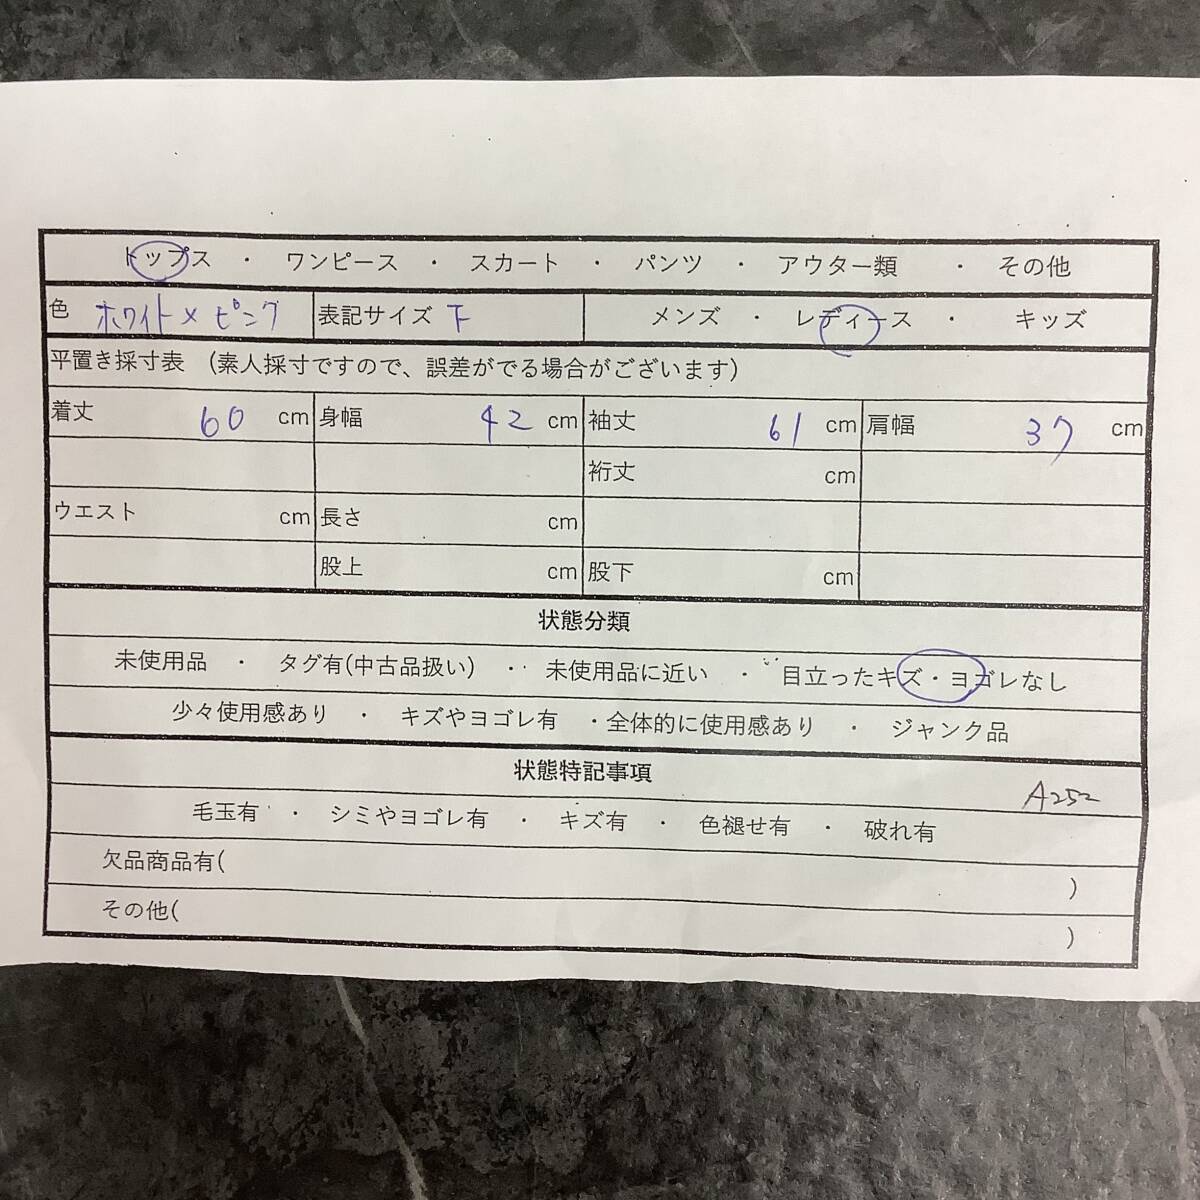 トップス ・ ワンピース ・ スカート ・ パンツ ・ アウター類 ・ その他
色 ホワイト×ピンク 表記サイズ F メンズ ・ レディース ・ キッズ
平置き採寸表 (素人採寸ですので、誤差がでる場合がございます)
着丈 60 cm 身幅 42 cm 袖丈 61 cm 肩幅 37 cm
裄丈 cm
ウエスト cm 長さ cm
股上 cm 股下 cm
状態分類
未使用品 ・ タグ有(中古品扱い) ・ 未使用品に近い ・ 目立ったキズ・ヨゴレなし
少々使用感あり ・ キズやヨゴレ有 ・全体的に使用感あり ・ ジャンク品
状態特記事項
A252
毛玉有 ・ シミやヨゴレ有 ・ キズ有 ・ 色褪せ有 ・ 破れ有
欠品商品有( )
その他( )